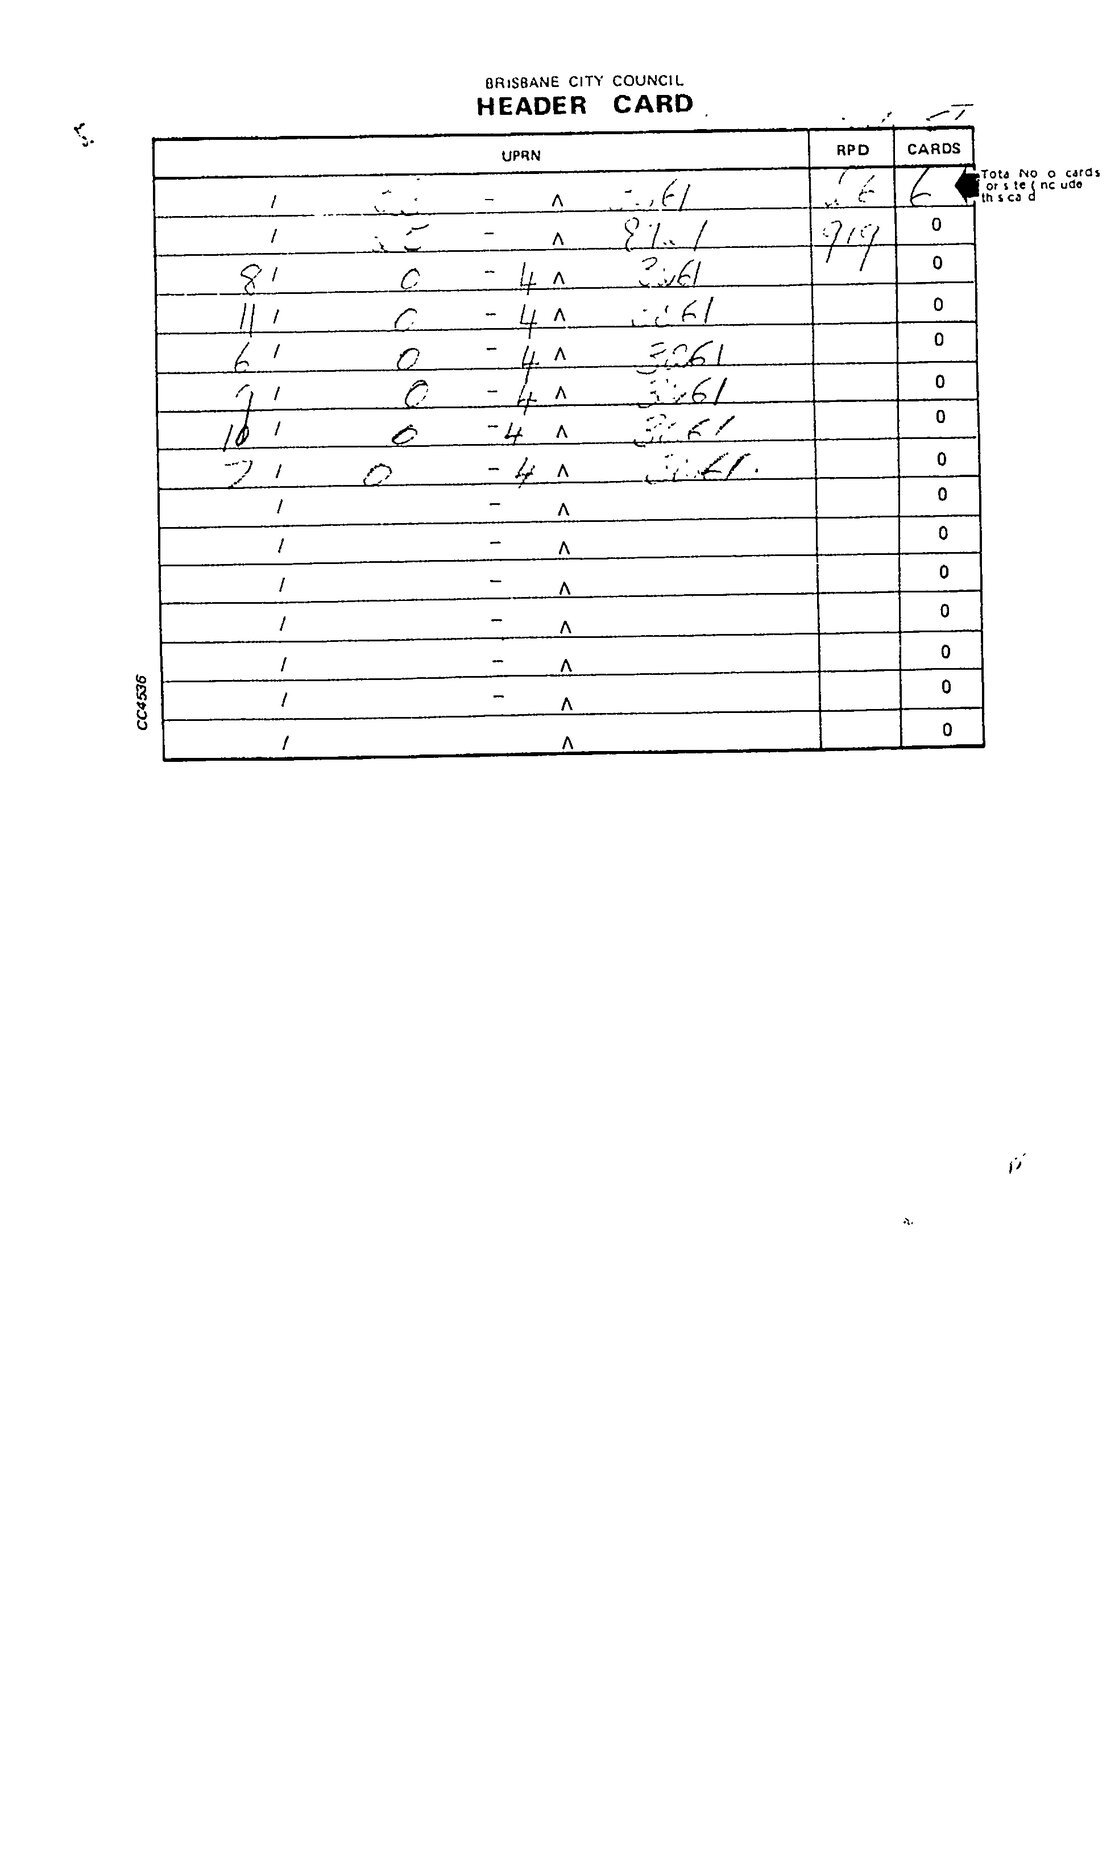 BRISBANE CITY COUNCIL
HEADER CARD
UPRN RPD CARDS
/ - ^ 6
Total No of cards
for site (include
this card)
/ - ^ 919 0
8 / 0 - 4 ^ 3061 0
11 / 0 - 4 ^ 0
6 / 0 - 4 ^ 3061 0
/ 0 - 4 ^ 3061 0
10 / 0 - 4 ^ 3061 0
7 / 0 - 4 ^ 3061. 0
/ - ^ 0
/ - ^ 0
/ - ^ 0
/ - ^ 0
/ - ^ 0
/ - ^ 0
/ ^ 0
CC4536